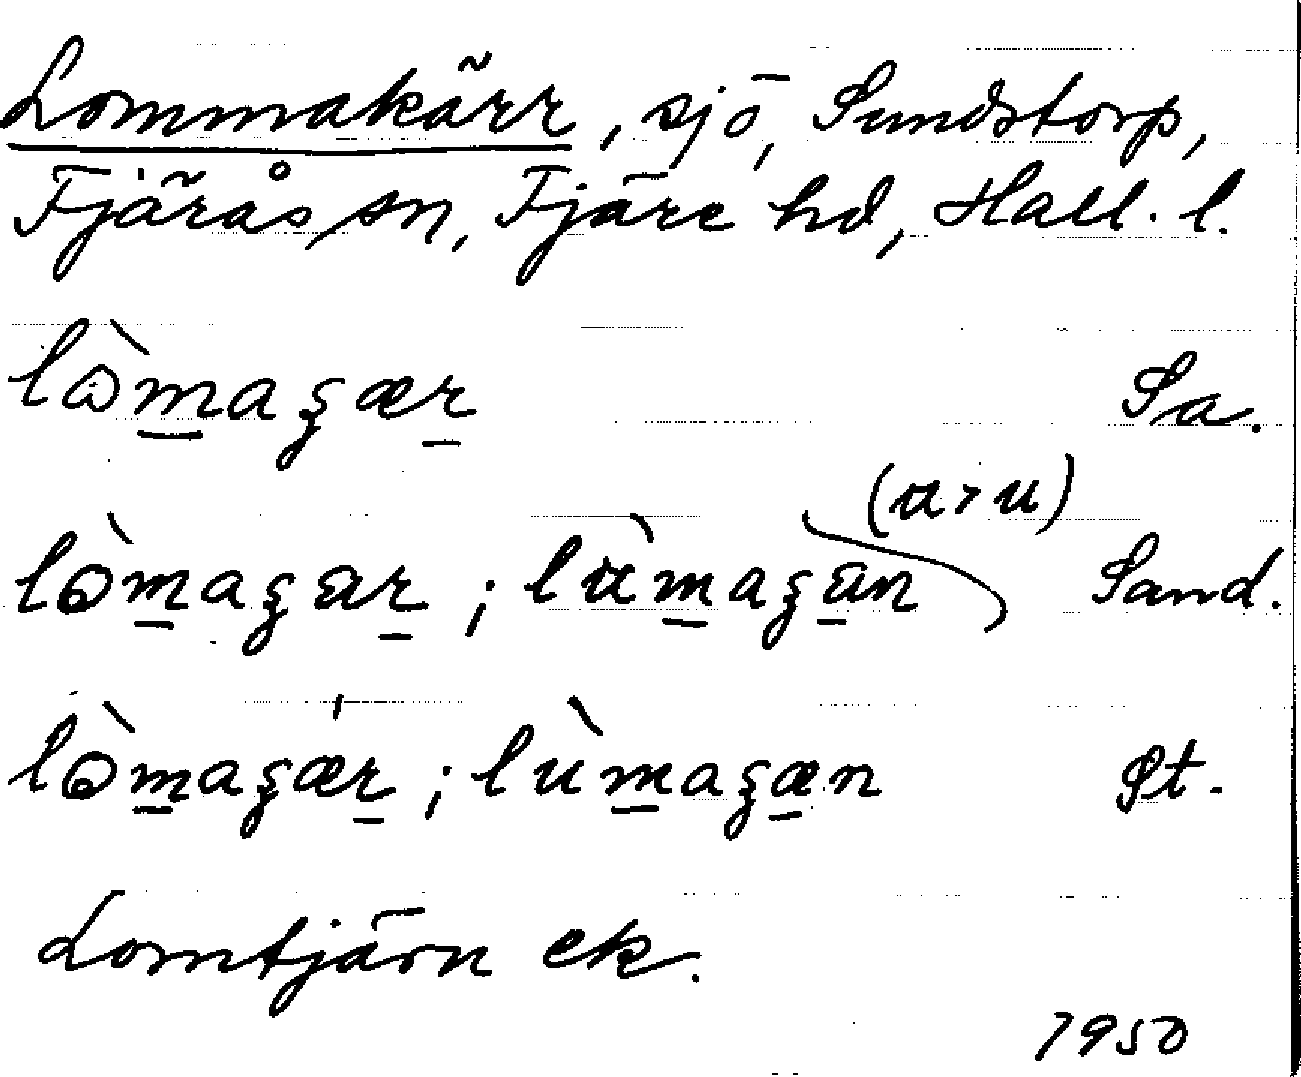 Lommakärr, sjö, Sundstorp,
Fjärås sn, Fjäre hd, Hall. l.
lòmaʒær Sa.
(ɯ > u)
lòmaʒær ; lùmaʒæn Sand.
lòmaʒæ̍r ; lùmaʒæn St.
Lomtjärn ek.
1950